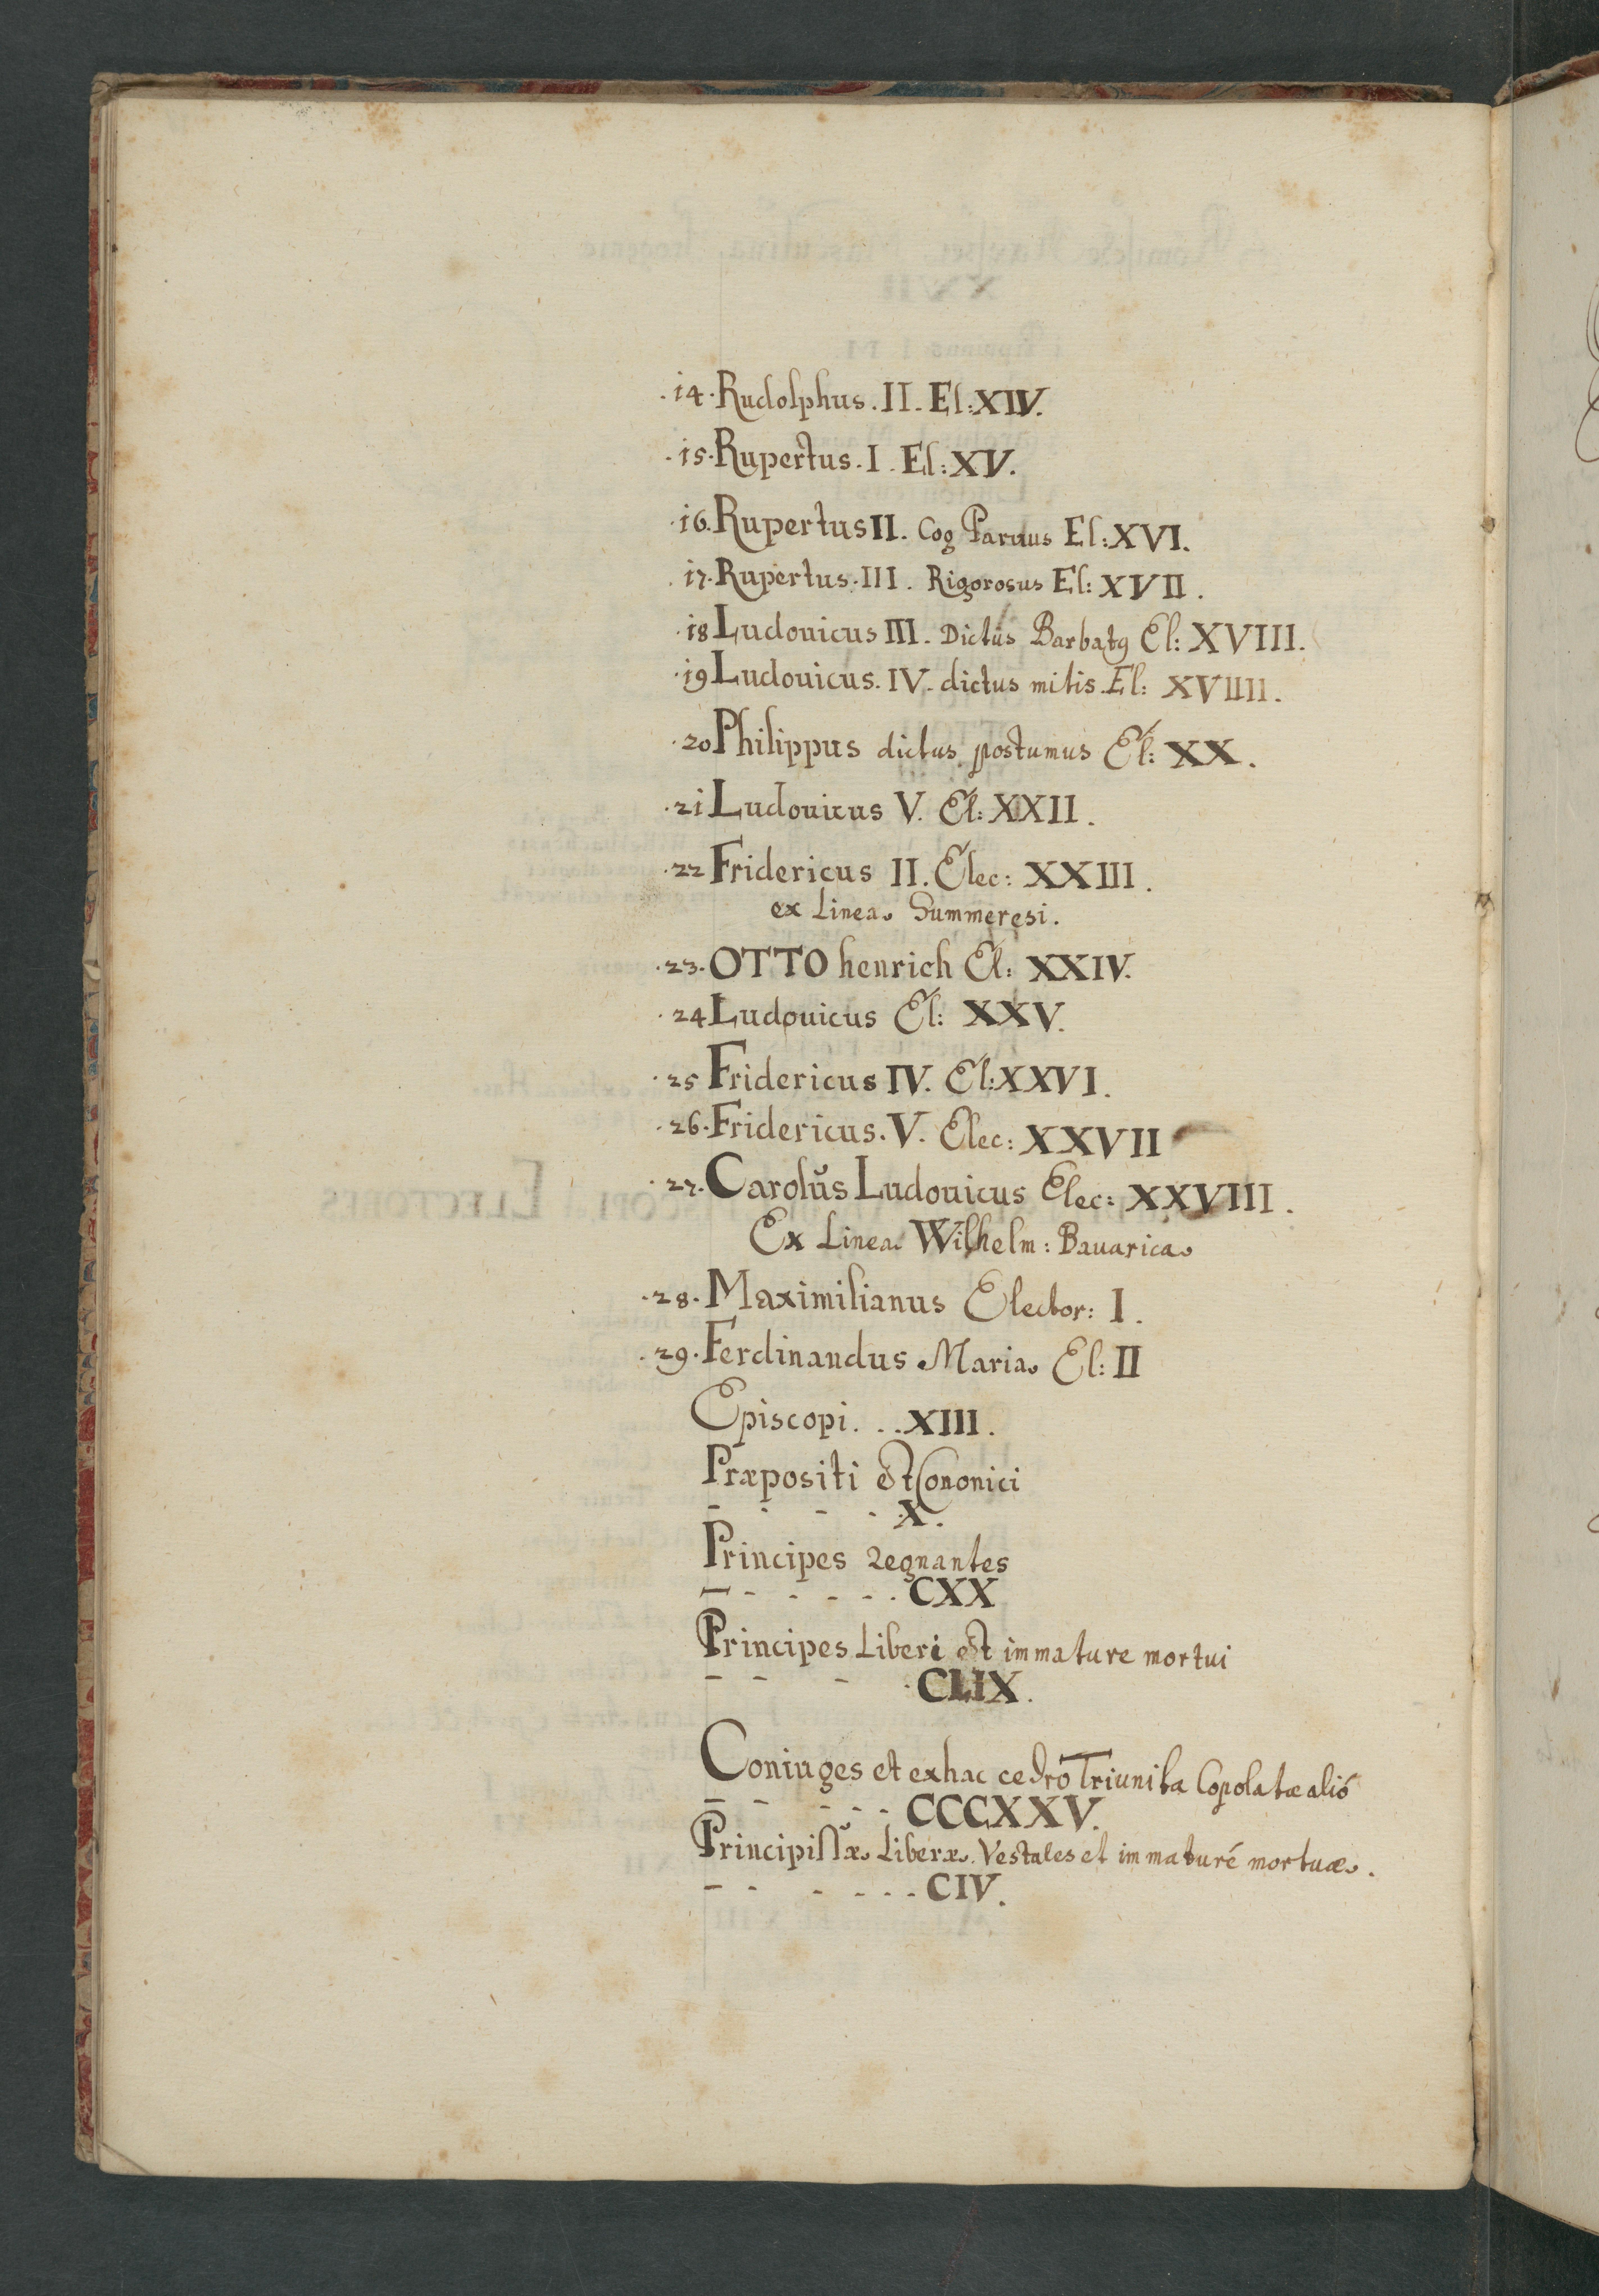 .14. Rudolphus. II. El: XIV.
.15. Rupertus. I. El: XV.
.16. Rupertus II. Cog Paruus El: XVI.
.17. Rupertus. III. Rigorosus El: XVII.
.18 Ludouicus III. Dictus Barbatꝰ El: XVIII.
.19 Ludouicus. IV. dictus mitis. El: XVIIII.
.20 Philippus dictus postumus El: XX.
.21 Ludouicus V. El: XXII.
.22 Fridericus II. Elec: XXIII.
ex Linea Summeresi.
.23. OTTO henrich El: XXIV.
.24 Ludouicus El: XXV.
.25 Fridericus IV. El: XXVI.
.26. Fridericus. V. Elec: XXVII
.27. Carolŭs Ludouicus Elec: XXVIII.
Ex Linea Wilhelm: Bauarica
.28. Maximilianus Elector: I.
.29. Ferdinandus Maria El: II
Episcopi. . . XIII.
Præpositi et Cononici
- - - - .X.
Principes Regnantes
- - - - - . CXX
Principes Liberi et immature mortui
- - - . CLIX.
Coniuges et exhac cedro Triunita Copolatæ alió
- - - - - CCCXXV.
Principissæ Liberæ. Vestales et immaturé mortuæ.
- - - - - - CIV.